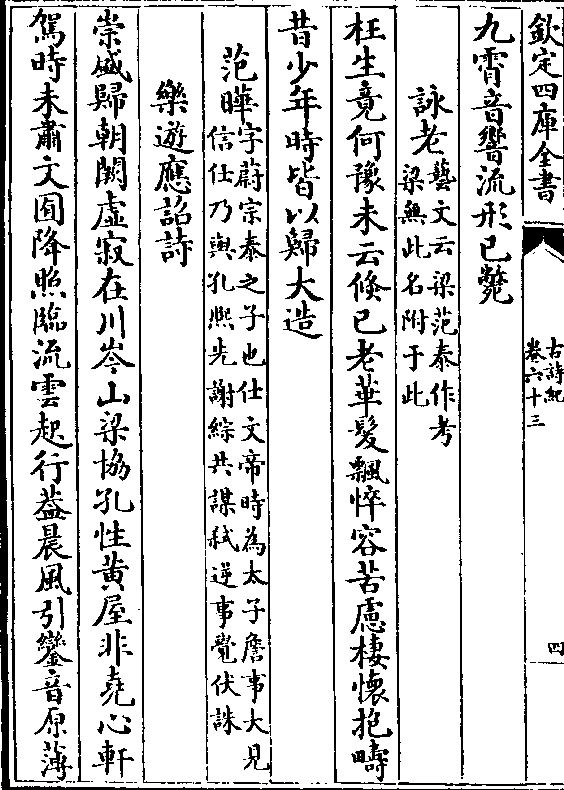 欽定四庫全書
古詩紀
卷六十三
四
九霄音響流形已斃
詠老藝文云梁范泰作考
梁無此名附于此
枉生竟何豫未云倐已老華髮飄悴容苦慮棲懷抱疇
昔少年時皆以歸大造
范曄字蔚宗泰之子也仕文帝時為太子詹事大見
信仕乃與孔熈先謝綜共謀弑逆事覺伏誅
樂遊應詔詩
崇盛歸朝闕虛寂在川岑山梁協孔性黄屋非堯心軒
駕時未肅文囿降照臨流雲起行葢晨風引鑾音原薄